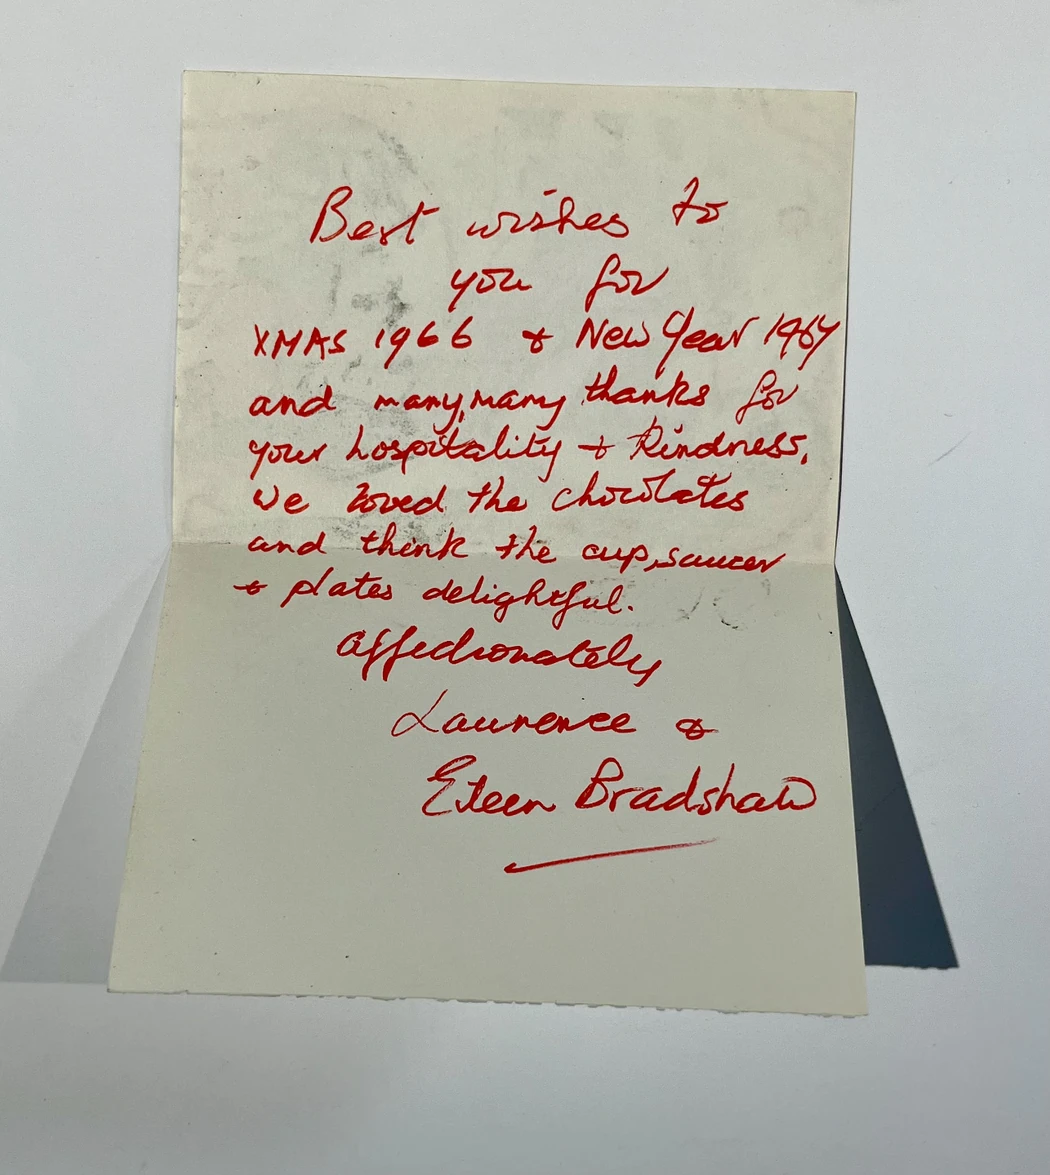 Best wishes to
you for
XMAS 1966 & New Year 1967
and many, many thanks for
your hospitality & kindness,
We loved the chocolates
and think the cup, saucer
& plates delightful.
Affectionately
Laurence &
Eileen Bradshaw